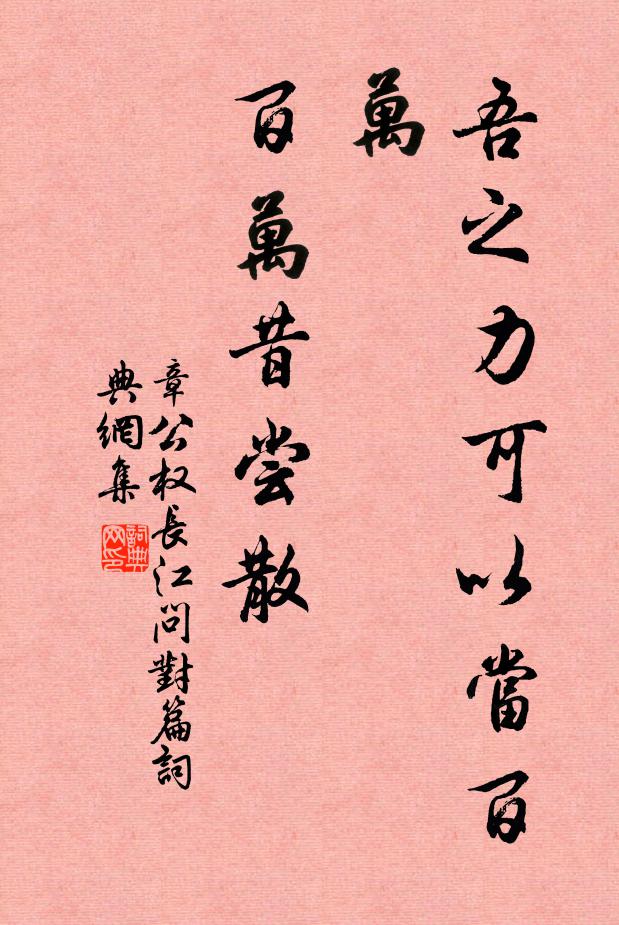 吾之力可以當百
萬
百萬昔嘗散
章公权長江問對篇詞
典網集
詞典
网印